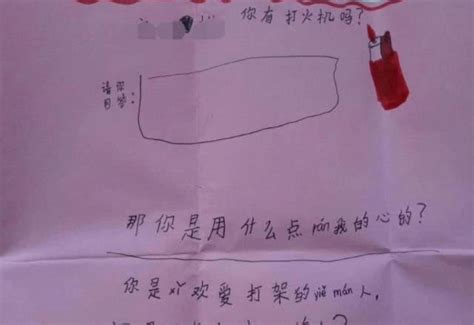 你有打火机吗？
请你
回答：
那你是用什么点rán我的心的？
你是xǐ欢爱打架的yě mán人，